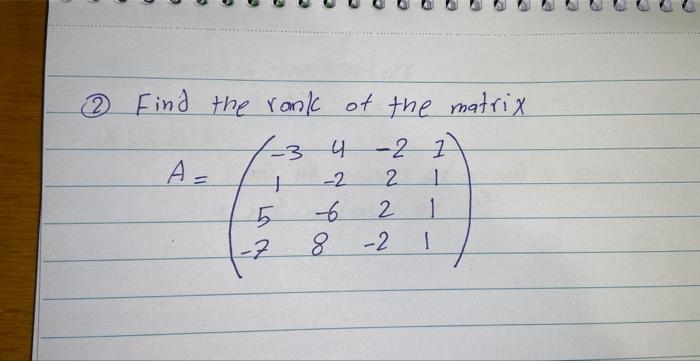 ② Find the rank of the matrix
-3 4 -2 1
A = 1 -2 2 1
5 -6 2 1
-7 8 -2 1